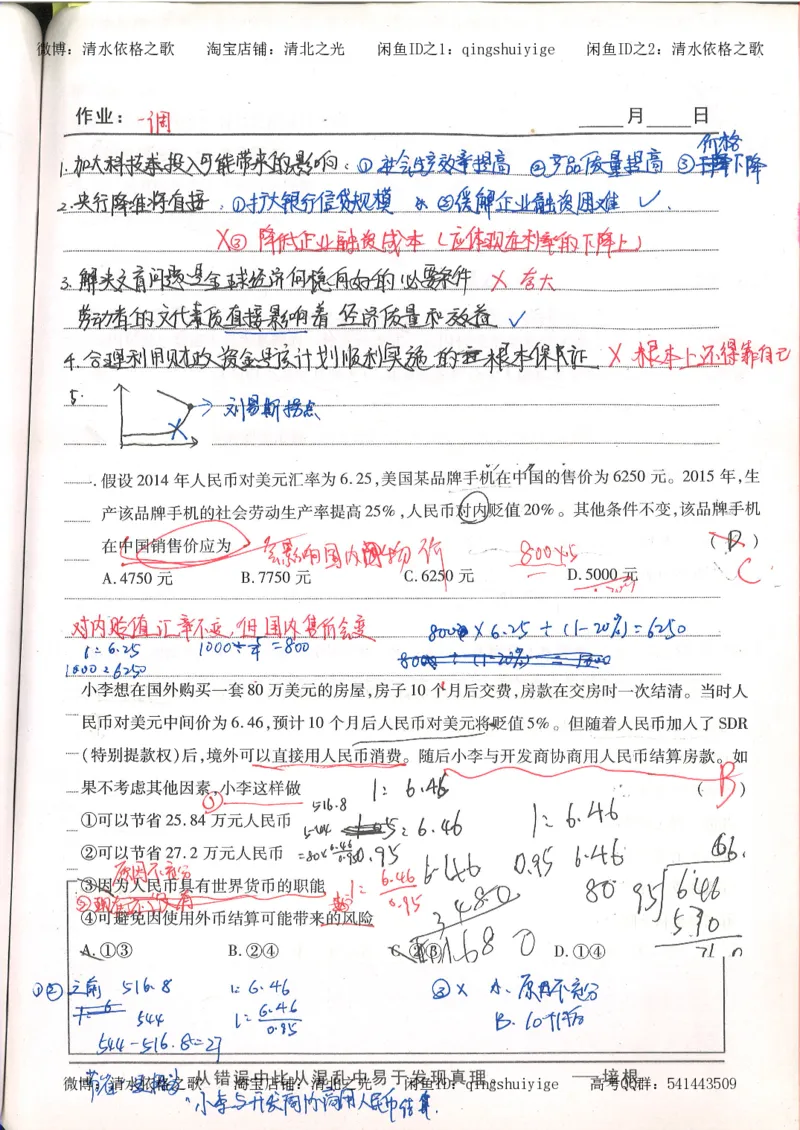 微博：清水依格之歌 淘宝店铺：清北之光 闲鱼ID之1：qingshuiyige 闲鱼ID之2：清水依格之歌
作业：一调 月 日
价格
1.加大科技投入可能带来的影响：①社会生产效率提高 ②产品质量提高 ③下降
2.央行降准将直接：①扩大银行信贷规模 ②缓解企业融资困难 ✓.
X③ 降低企业融资成本（应体现在利率的下降上）
3.解决文盲问题是全球经济向稳向好的必要条件 X 夸大
劳动者的文化素质直接影响着经济质量和效益 ✓
4.合理利用财政资金是该计划顺利实施的根本保证 X 根本上还得靠自己
5. → 刘易斯拐点
. 假设2014年人民币对美元汇率为6.25,美国某品牌手机在中国的售价为6250元。2015年,生
产该品牌手机的社会劳动生产率提高25%,人民币对内贬值20%。其他条件不变,该品牌手机
在中国销售价应为 会影响国内购物价 800×5 （ D ）
A.4750元 B.7750元 C.6250元 D.5000元 C
对内贬值汇率不变，但国内售价会变 800×6.25÷(1-20%)=6250
1=6.25 =800
1000=6250
小李想在国外购买一套80万美元的房屋,房子10个月后交费,房款在交房时一次结清。当时人
民币对美元中间价为6.46,预计10个月后人民币对美元将贬值5%。但随着人民币加入了SDR
(特别提款权)后,境外可以直接用人民币消费。随后小李与开发商协商用人民币结算房款。如
果不考虑其他因素,小李这样做 1=6.46 （ B ）
①可以节省25.84万元人民币 516.8 =6.46 1=6.46
②可以节省27.2万元人民币 =80× 6.46/0.95 0.95 6.46 0.95 6.46
原因不充分
③因为人民币具有世界货币的职能 1= 6.46/0.95 80 95 646
④可避免因使用外币结算可能带来的风险 570
A.①③ B.②④ C.②③ D.①④
①②之前 516.8 1=6.46 ③X 原因不充分
544 1= 6.46/0.95 B.10个月后
544-516.8=27
从错误中比从混乱中易于发现真理 ——培根
微博：清水依格之歌 淘宝店铺：清北之光 闲鱼ID：qingshuiyige 高考QQ群：541443509
"小李与开发商协商用人民币结算.